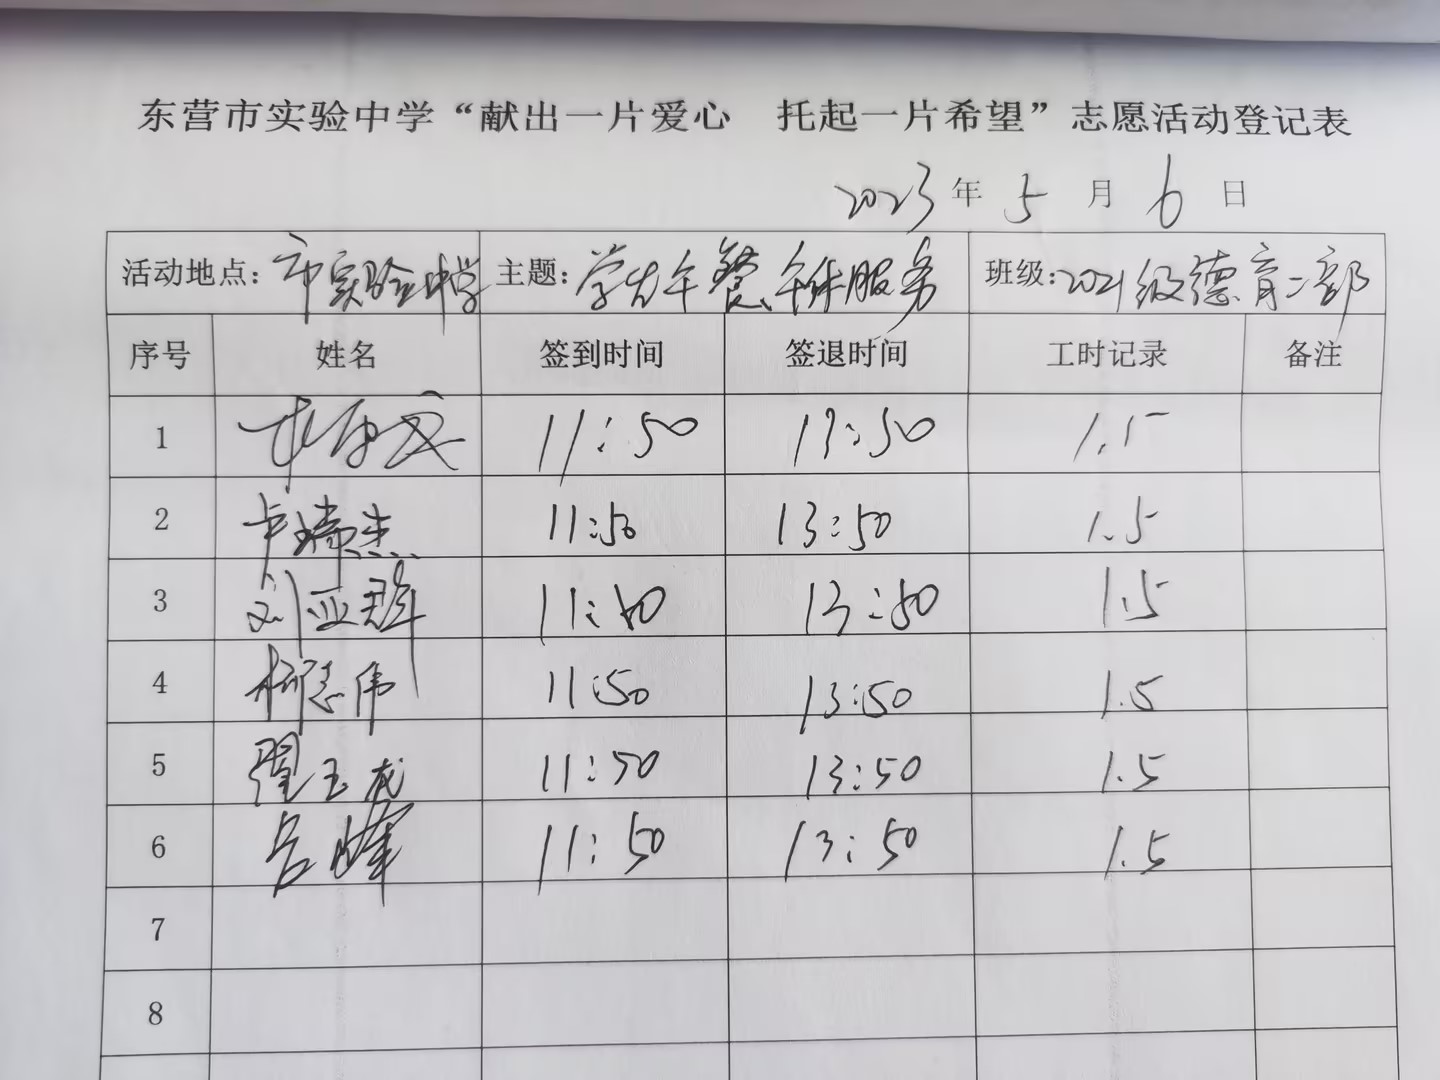 东营市实验中学“献出一片爱心 托起一片希望”志愿活动登记表
2023年5月6日
活动地点：市实验中学 主题：学生午餐午休服务 班级：2021级德育二部
序号 姓名 签到时间 签退时间 工时记录 备注
1 11:50 13:50 1.5
2 卞瑞杰 11:50 13:50 1.5
3 刘亚群 11:50 13:50 1.5
4 柯志伟 11:50 13:50 1.5
5 翟玉龙 11:50 13:50 1.5
6 吕峰 11:50 13:50 1.5
7
8